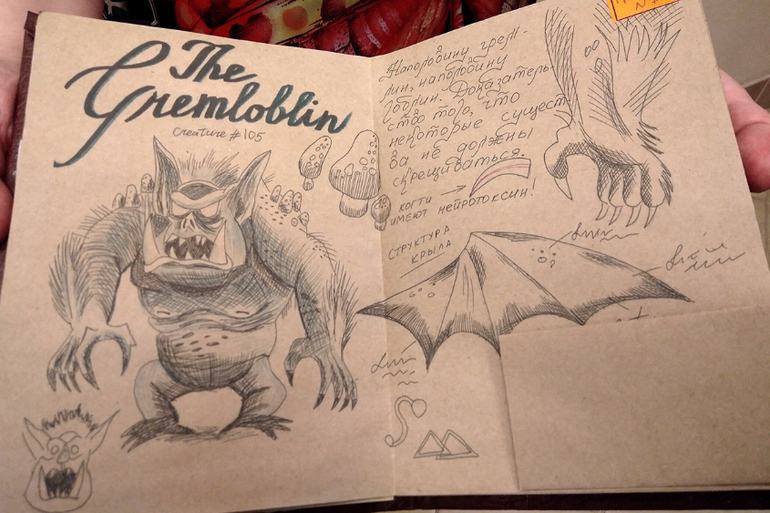 The
Gremloblin
Creature #105
Наполовину грем-
лин, наполовину
Гоблин. Доказатель-
ство того, что
некоторые сущест
ва не должны
скрещиваться.
когти
имеют нейротоксин!
структура
крыла